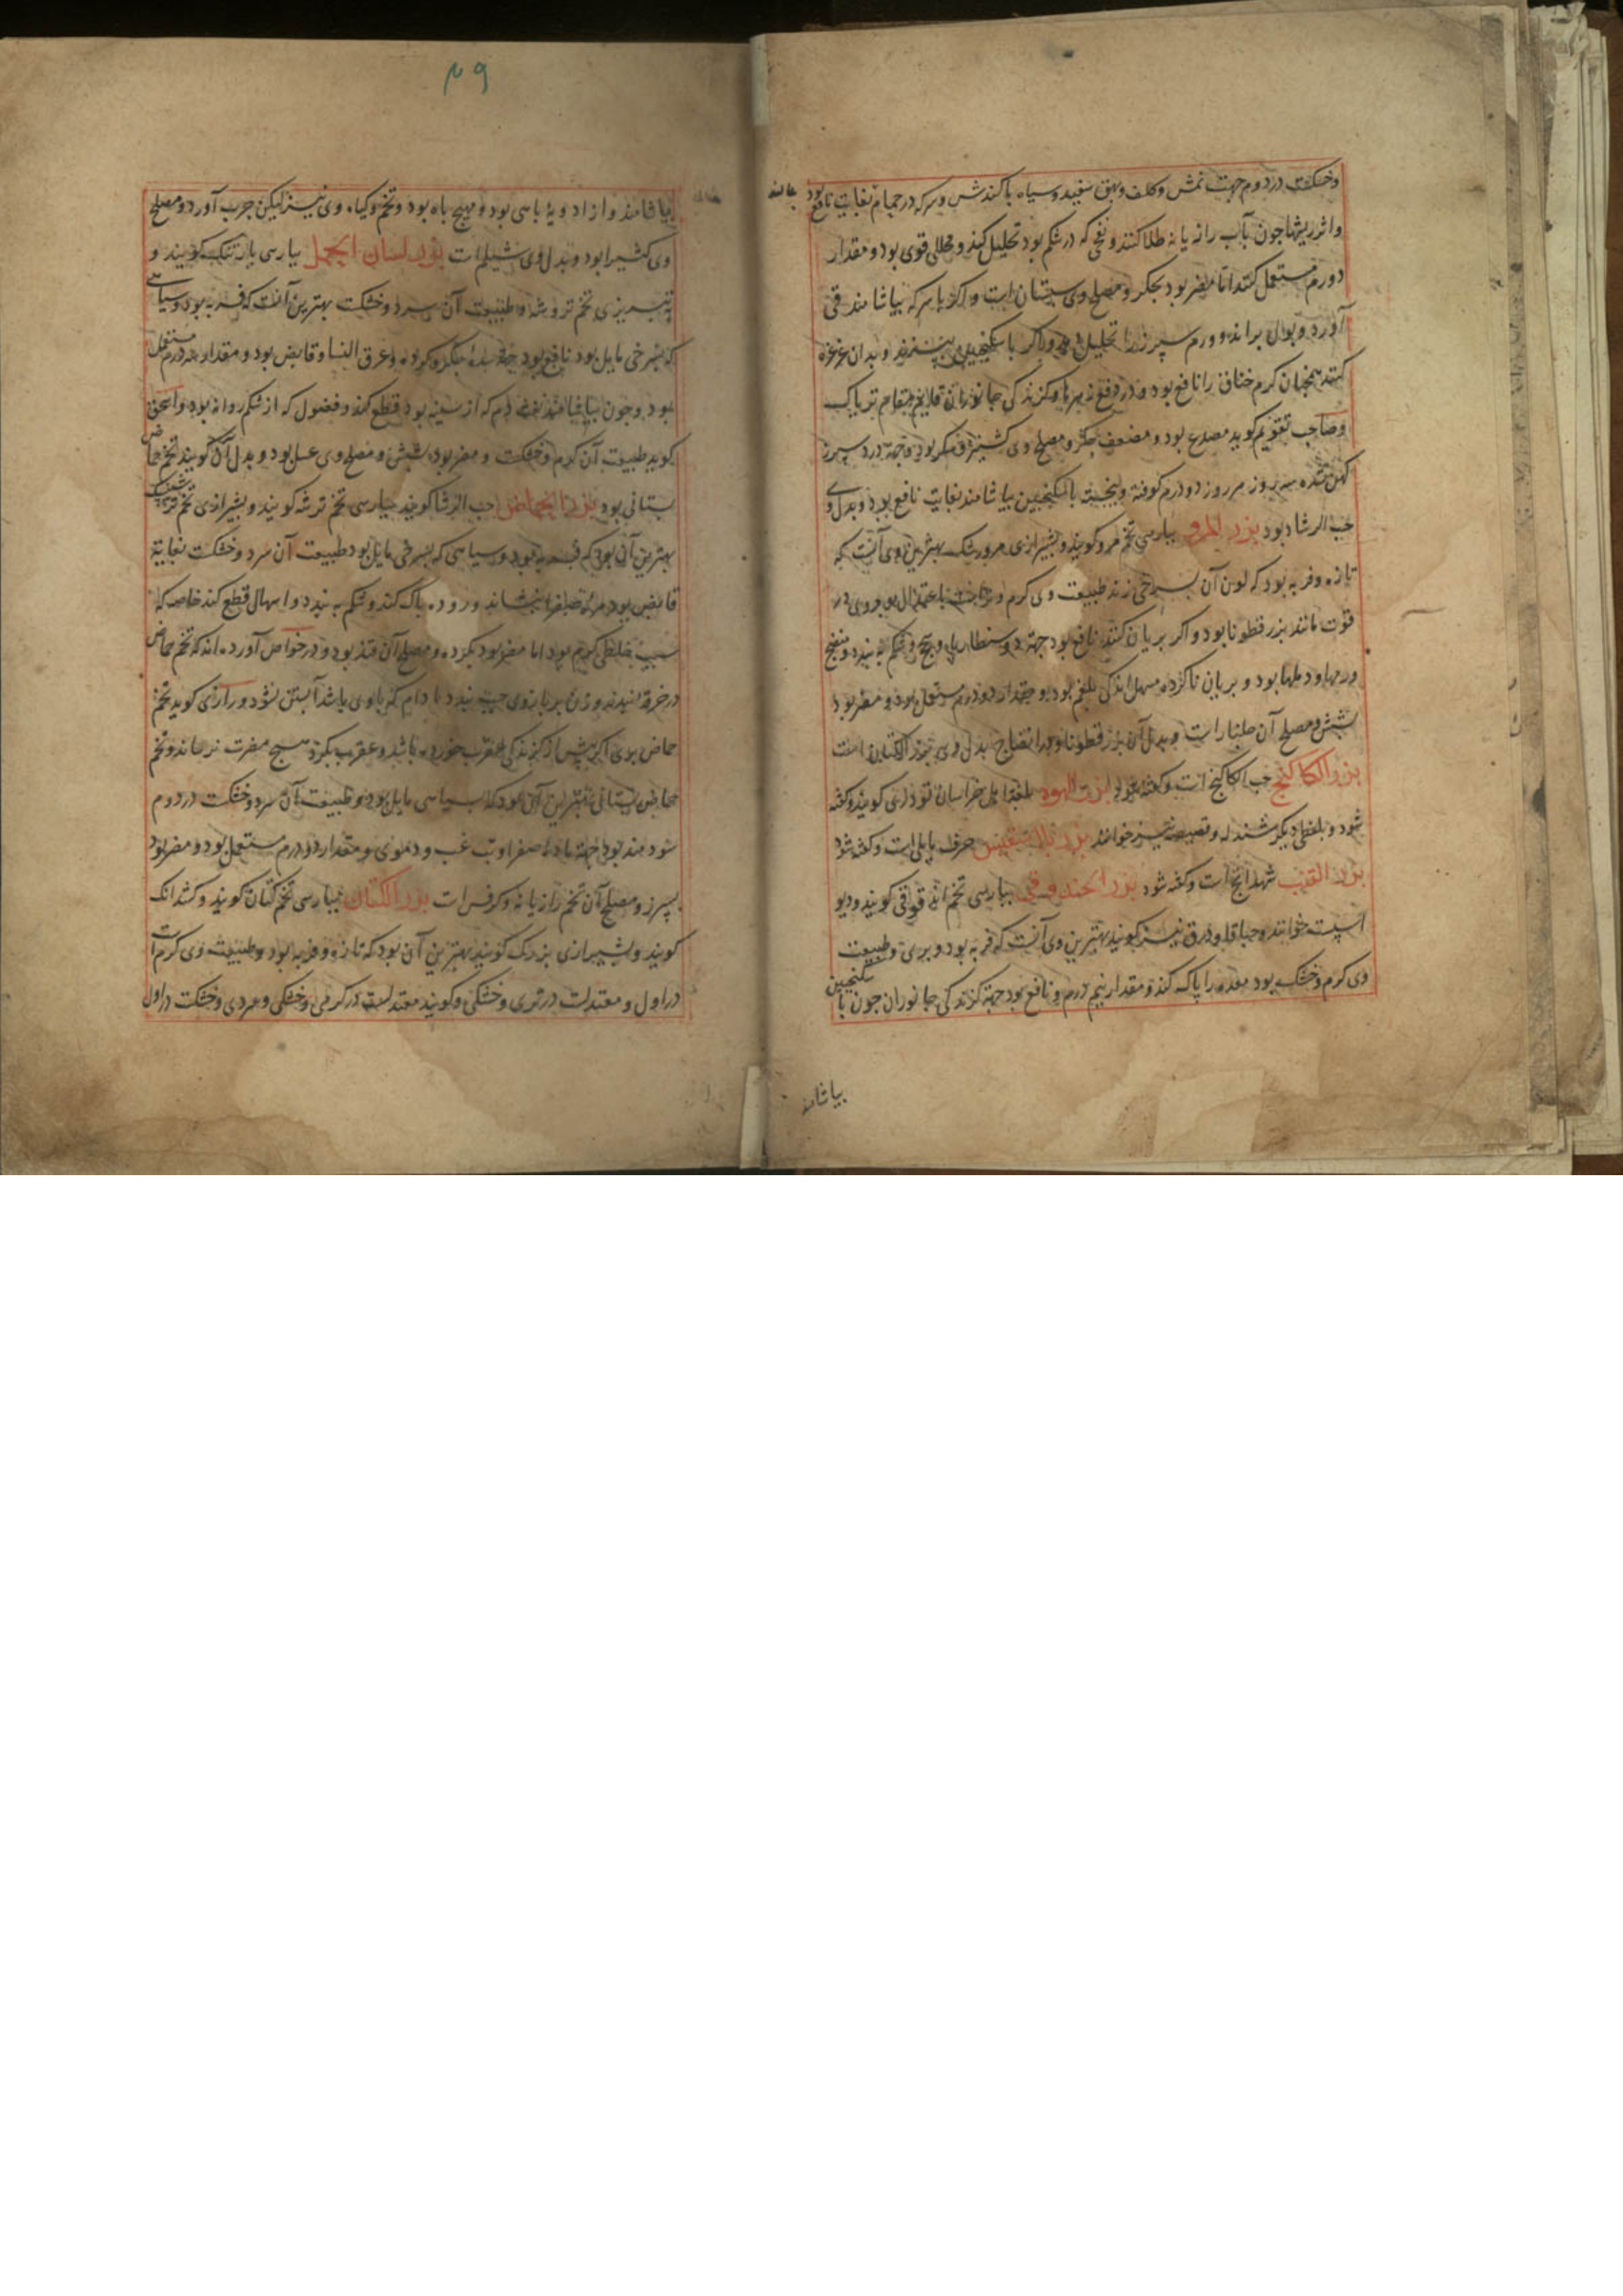 وخشکست در دوم جهت نمش وکلف وبهق سفید وسیاه با کندش وسرکه در حمام بغایت نافع بود
واثر ریشها چون بآب رازیانه طلا کنند ونفخی که در شکم بود تحلیل کند ومحللی قوی بود ومقدار
دو درم مستعمل کنند اما مضر بود بجگر ومصلح وی سپستان است واگر با سرکه بیاشامند قی
آورد وبول براند وورم سپرز را تحلیل دهد واگر با سکنجبین بپزند وبدان غرغره
کنند همچنان گرم خناق را نافع بود ودر دفع زهرها وگزندگی جانوران قایم مقام تریاک
وصاحب تقویم گوید مصدع بود ومضعف جگر ومصلح وی کشنیز وشکر بود وجهة درد سپرز
کهن شده سه روز هر روز دو درم کوفته وبیخته با سکنجبین بیاشامند بغایت نافع بود وبدل وی
حب الرشاد بود بزر المرو بپارسی تخم مرو گویند وبشیرازی مرورشک بهترین وی آنست که
تازه وفربه بود که لون آن بسرخی زند طبیعت وی گرم و باعتدال بود وی در
قوت مانند بزر قطونا بود واگر بریان کنند نافع بود جهة دوسنطاریا وسحج وشکم ببندد ومنضج
ورمها ودملها بود وبریان ناکرده مسهل اندکی بلغم بود ومقدار دو درم مستعمل بود ومضر بود
بشش ومصلح آن جلنار است وبدل آن بزر قطونا ودر انضاج بدل وی بزر الکتان است
بزر الکاکنج حب الکاکنج است وگفته شود بزر الهوه بلغة اهل خراسان تودری گویند وگفته
شود وبلفظی دیگر شندله وقصیصه نیز خوانند بزر حرف بابلی است وگفته شود
بزر القنب شهدانج است وگفته شود بزر الحندقوقی بپارسی تخم اندقوقی گویند ودیو
اسپست خوانند وحباقا وذرق نیز گویند بهترین وی آنست که فربه بود وبری وطبیعت
وی گرم وخشک بود معده را پاک کند ومقدار نیم درم ونافع بود جهة گزندگی جانوران چون با سکنجبین
بیاشامند
۴۹
بیاشامند واز ادویهٔ باهی بود ومهیج باه بود وتخم وگیاه وی نیز لیکن جرب آورد ومصلح
وی کتیرا بود وبدل وی شیلم است بزر لسان الحمل بپارسی بارتنگ گویند و
تبریزی تخم وطبیعت آن سرد وخشکست بهترین آنست که فربه بود وسیاهی
که بسرخی مایل بود نافع بود جهة سدهٔ جگر وگرده وعرق النسا وقابض بود ومقدار سه درم مستعمل
بود وچون بیاشامند نفث دم که از سینه بود قطع کند وفضول که از شکم روانه بود واسحق
گوید طبیعت آن گرم وخشکست ومضر بود بشش ومصلح وی عسل بود وبدل آن گویند تخم حماض
بستانی بود بزر الحماض حب الرشا گویند بپارسی تخم ترشه گویند وبشیرازی تخم
بهترین آن بود که فربه بود وسیاهی که بسرخی مایل بود طبیعت آن سرد وخشکست بغایة
قابض بود مرهٔ صفرا بنشاند وروده پاک کند وشکم ببندد واسهال قطع کند خاصه که
سبب خلطی گرم بود اما مضر بود بگرده ومصلح آن قند بود ودر خواص آورده اند که تخم حماض
در خرقه بندند وزن بر بازوی چپ بندد مادام که با وی باشد آبستن نشود ورازی گوید تخم
حماض بری اگر پیش از گزندگی عقرب خورده باشد وعقرب بگزد هیچ مضرت نرساند وتخم
حماض بستانی بهترین آن بود که بسیاهی مایل بود وطبیعت آن سرد وخشکست در دوم
سودمند بود جهة مادهٔ صفراوی غب ودموی ومقدار دو درم مستعمل بود ومضر بود
بسپرز ومصلح آن تخم رازیانه وکرفس است بزر الکتان بپارسی تخم کتان گویند وکتدانک
گویند وبشیرازی بزرک گویند بهترین آن بود که تازه وفربه بود وطبیعت وی گرم است
در اول ومعتدلست در تری وخشکی وگویند معتدلست در گرمی وخشکی وسردی وخشکست در اول